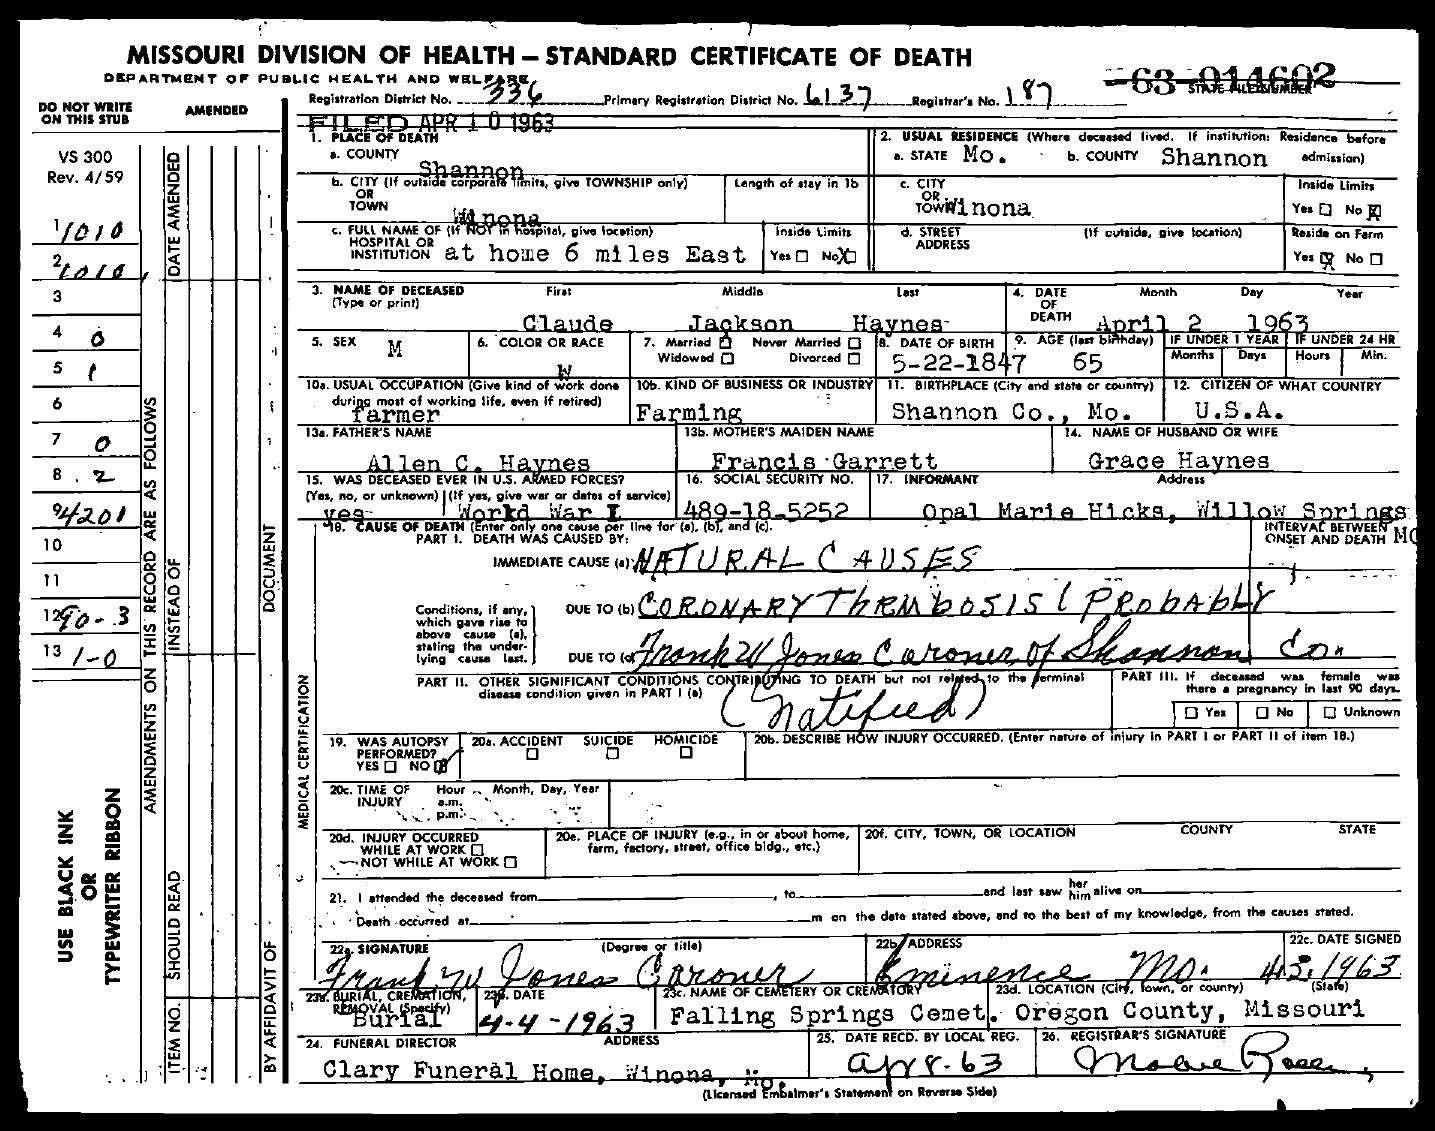 MISSOURI DIVISION OF HEALTH — STANDARD CERTIFICATE OF DEATH
DEPARTMENT OF PUBLIC HEALTH AND WELFARE
-63-014602
STATE FILE NUMBER
Registration District No. 336 Primary Registration District No. 6137 Registrar's No. 187
FILED APR 10 1963
DO NOT WRITE ON THIS STUB
AMENDED
VS 300
Rev. 4/59
1 1010
2 1010
3
4 0
5 1
6
7 0
8 . 2
9 4201
10
11
12 90-3
13 1-0
USE BLACK INK OR TYPEWRITER RIBBON
AMENDMENTS ON THIS RECORD ARE AS FOLLOWS
DATE AMENDED
INSTEAD OF
SHOULD READ
ITEM NO.
DOCUMENT
BY AFFIDAVIT OF
1. PLACE OF DEATH
a. COUNTY
Shannon
b. CITY (If outside corporate limits, give TOWNSHIP only) OR TOWN
Winona
Length of stay in 1b
c. FULL NAME OF (If NOT in hospital, give location) HOSPITAL OR INSTITUTION at home 6 miles East
Inside Limits
Yes ☐ No ☒
2. USUAL RESIDENCE (Where deceased lived. If institution: Residence before admission)
a. STATE Mo. b. COUNTY Shannon
c. CITY OR TOWN Winona
Inside Limits
Yes ☐ No ☒
d. STREET ADDRESS (If outside, give location)
Reside on Farm
Yes ☒ No ☐
3. NAME OF DECEASED (Type or print) First Middle Last
Claude Jackson Haynes
4. DATE OF DEATH Month Day Year
April 2 1963
5. SEX M
6. COLOR OR RACE
W
7. Married ☒ Never Married ☐
Widowed ☐ Divorced ☐
8. DATE OF BIRTH
5-22-1847
9. AGE (last birthday)
65
IF UNDER 1 YEAR
Months Days
IF UNDER 24 HR
Hours Min.
10a. USUAL OCCUPATION (Give kind of work done during most of working life, even if retired)
farmer
10b. KIND OF BUSINESS OR INDUSTRY
Farming
11. BIRTHPLACE (City and state or country)
Shannon Co., Mo.
12. CITIZEN OF WHAT COUNTRY
U.S.A.
13a. FATHER'S NAME
Allen C. Haynes
13b. MOTHER'S MAIDEN NAME
Francis Garrett
14. NAME OF HUSBAND OR WIFE
Grace Haynes
15. WAS DECEASED EVER IN U.S. ARMED FORCES?
(Yes, no, or unknown) (If yes, give war or dates of service)
yes World War I
16. SOCIAL SECURITY NO.
489-18-5252
17. INFORMANT Address
Opal Marie Hicks, Willow Springs Mo
MEDICAL CERTIFICATION
18. CAUSE OF DEATH (Enter only one cause per line for (a), (b), and (c).
PART I. DEATH WAS CAUSED BY:
INTERVAL BETWEEN ONSET AND DEATH
IMMEDIATE CAUSE (a) NATURAL CAUSES
Conditions, if any, which gave rise to above cause (a), stating the underlying cause last.
DUE TO (b) CORONARY THRMBOSIS ( PROBABLY
DUE TO (c) Frank W Jones Caroner of Shannon Co.
PART II. OTHER SIGNIFICANT CONDITIONS CONTRIBUTING TO DEATH but not related to the terminal disease condition given in PART I (a)
(Natified)
PART III. If deceased was female was there a pregnancy in last 90 days.
☐ Yes ☐ No ☐ Unknown
19. WAS AUTOPSY PERFORMED?
YES ☐ NO ☒
20a. ACCIDENT SUICIDE HOMICIDE
☐ ☐ ☐
20b. DESCRIBE HOW INJURY OCCURRED. (Enter nature of injury in PART I or PART II of item 18.)
20c. TIME OF INJURY Hour a.m. p.m. Month, Day, Year
20d. INJURY OCCURRED
WHILE AT WORK ☐
NOT WHILE AT WORK ☐
20e. PLACE OF INJURY (e.g., in or about home, farm, factory, street, office bldg., etc.)
20f. CITY, TOWN, OR LOCATION COUNTY STATE
21. I attended the deceased from , to and last saw her him alive on
Death occurred at m on the date stated above, and to the best of my knowledge, from the causes stated.
22a. SIGNATURE (Degree or title)
Frank W Jones Caroner
22b. ADDRESS
Eminence Mo.
22c. DATE SIGNED
4.3.1963
23a. BURIAL, CREMATION, REMOVAL (Specify)
Burial
23b. DATE
4-4-1963
23c. NAME OF CEMETERY OR CREMATORY
Falling Springs Cemet.
23d. LOCATION (City, town, or county) (State)
Oregon County, Missouri
24. FUNERAL DIRECTOR ADDRESS
Clary Funeral Home, Winona, Mo.
25. DATE RECD. BY LOCAL REG.
Apr 8-63
26. REGISTRAR'S SIGNATURE
(Licensed Embalmer's Statement on Reverse Side)